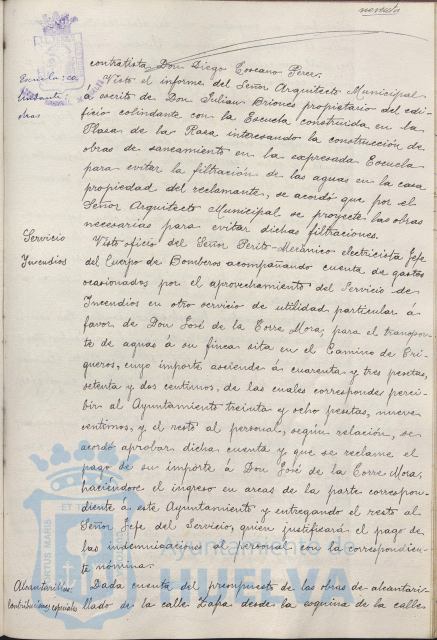 noventa
contratista Don Diego Toscano Perez.
Visto el informe del Señor Arquitecto Municipal
a escrito de Don Julian Briones propietario del edi-
ficio colindante con la Escuela construida en la
Plaza de la Rasa interesando la construcción de
obras de saneamiento en la expresada Escuela
para evitar la filtración de las aguas en la casa
propiedad del reclamante, se acordó que por el
Señor Arquitecto Municipal se proyecte las obras
necesarias para evitar dichas filtraciones.
Servicio
Incendios
Visto oficio del Señor Perito-Mecanico electricista Jefe
del Cuerpo de Bomberos acompañando cuenta de gastos
ocasionados por el aprovechamiento del Servicio de
Incendios en otro servicio de utilidad particular á
favor de Don José de la Corre Mora, para el transpor-
te de aguas á su finca sita en el Camino de Tri-
gueros, cuyo importe asciende á cuarenta y tres pesetas,
setenta y dos centimos, de las cuales corresponde perci-
bir al Ayuntamiento treinta y ocho pesetas, nueve
centimos, y el resto al personal, según relación, se
acordó aprobar dicha cuenta y que se reclame el
pago de su importe á Don José de la Corre Mora,
haciéndose el ingreso en arcas de la parte correspon-
diente á este Ayuntamiento y entregando el resto al
Señor Jefe del Servicio, quien justificará el pago de
las indemnizaciones al personal con la correspondien-
te nómina.
Alcantarillas:
Contribuciones especiales
Dada cuenta del presupuesto de las obras de alcantari-
llado de la calle Zafa desde la esquina de la calle
Ayuntamiento de
HUELVA